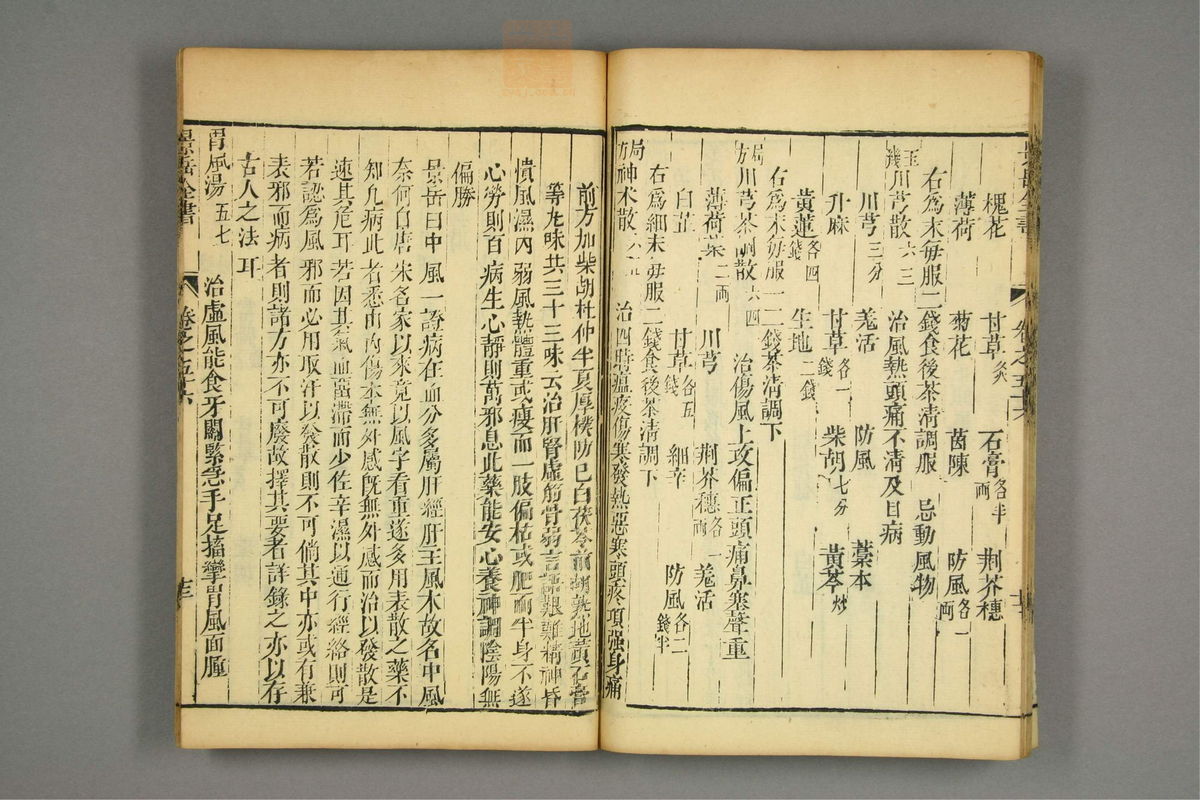 槐花　甘草炙　石膏各半両　荆芥穗
薄荷　菊花　茵陳　防風各一両
右爲末每服二錢食後茶清調服　忌動風物
玉機川芎散六三　治風熱頭痛不清及目病
川芎三分　羗活　防風　藁本
升麻　甘草各一錢　柴胡七分　黃芩炒
黃連各四錢　生地二錢
右爲末每服一二錢茶清調下
局方川芎茶調散六四　治傷風上攻偏正頭痛鼻塞聲重
薄荷葉二両　川芎　荆芥穗各一両　羗活
白芷　甘草各五錢　細辛　防風各二錢半
右爲細末每服二錢食後茶清調下
局方神术散　治四時瘟疫傷寒發熱惡寒頭疼項强身痛
前方加柴胡杜仲半夏厚樸防已白茯苓前胡熟地黃石膏
等九味共三十三味云治肝腎虛筋骨弱言語艱難精神昏
憒風濕內弱風熱體重或瘦而一肢偏枯或肥而半身不遂
心勞則百病生心靜則萬邪息此藥能安心養神調陰陽無
偏勝
景岳曰中風一證病在血分多屬肝經肝主風木故名中風
奈何自唐宋名家以來竟以風字看重遂多用表散之藥不
知凡病此者悉由內傷本無外感既無外感而治以發散是
速其危耳若因其氣血留滯而少佐辛濕以通行經絡則可
若認爲風邪而必用取汗以發散則不可倘其中亦或有兼
表邪而病者則諸方亦不可廢故擇其要者詳錄之亦以存
古人之法耳
胃風湯五七　治虛風能食牙關緊急手足搐攣胃風面腫
景岳全書　卷之五十六